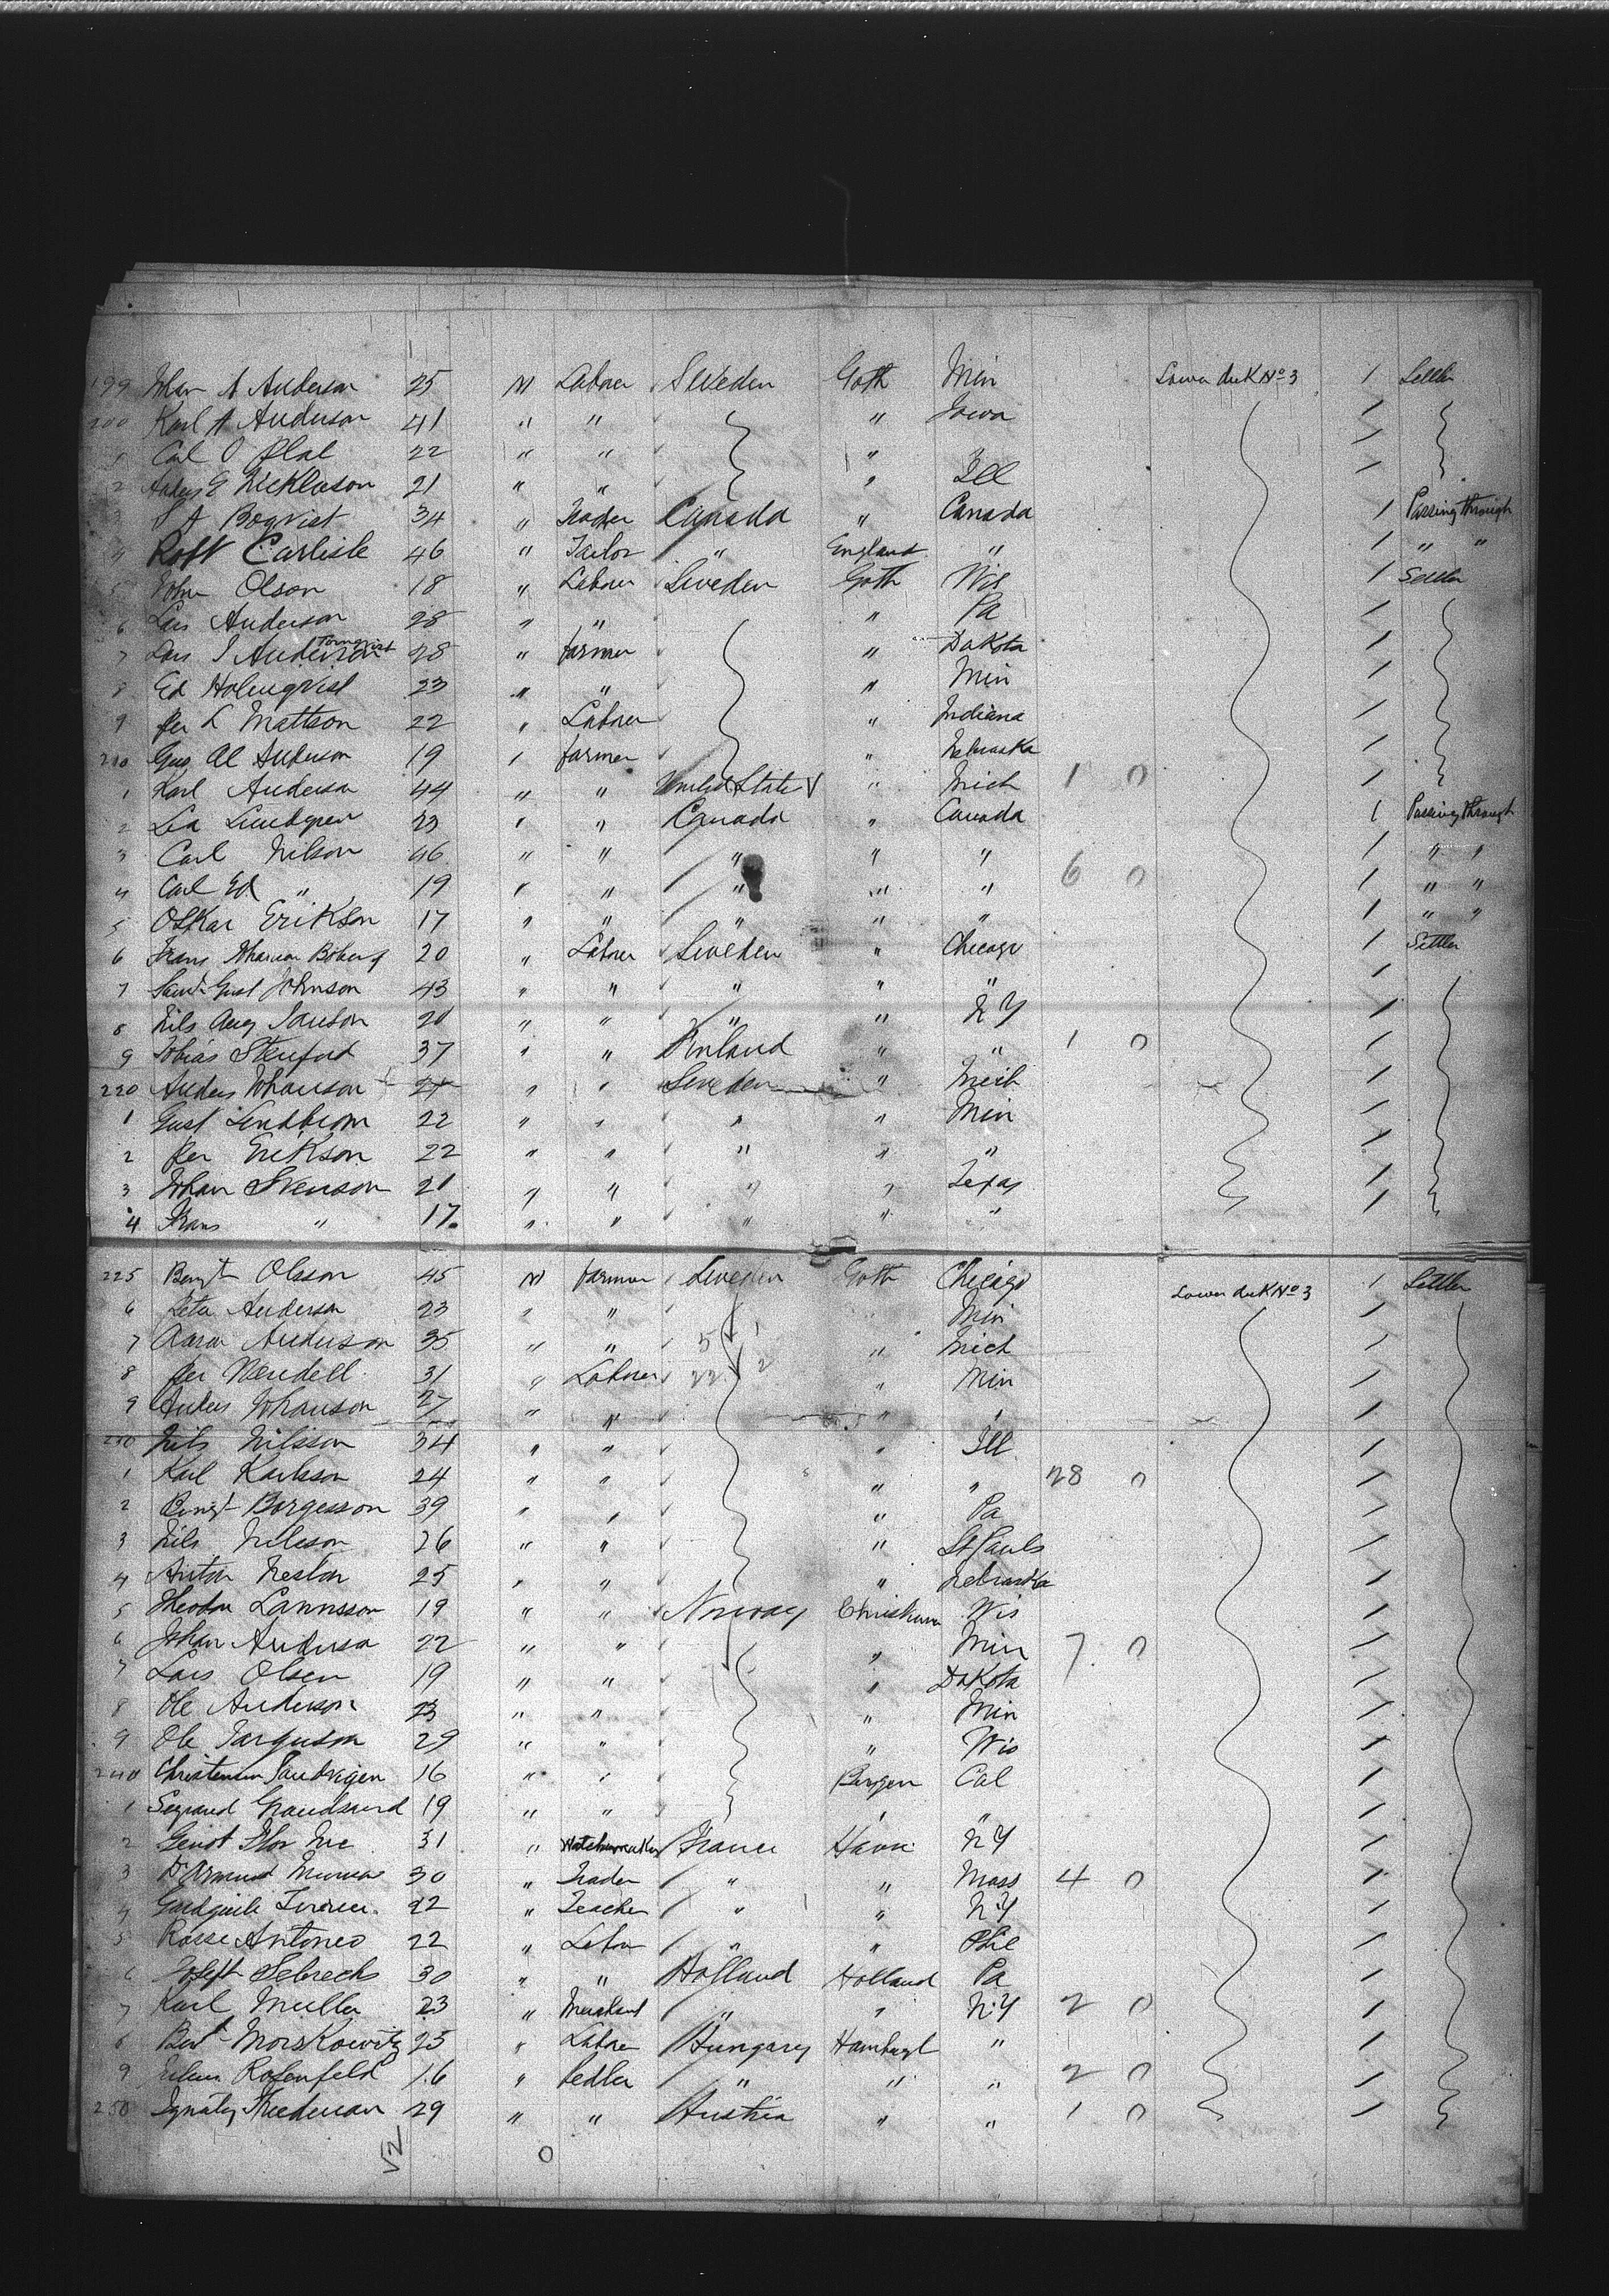 199 Johan A Anderson 25 M Laborer Sweden Goth Min Lower deck No 3 1 Settler
200 Karl A Anderson 41 " " " Iowa 1
1 Carl O 22 " " " 1
2 Anders G 21 " " " Ill 1
3 A Boqvist 34 " Trader Canada " Canada 1 Passing through
4 Robt Carlisle 46 " Tailor " England " 1 " "
5 John Olson 18 " Laborer Sweden Goth Wis 1 Settler
6 Lars Anderson 28 " " " Pa 1
7 Lars Anderson Tornqvist 28 " farmer " Dakota 1
8 Ed Holmqvist 23 " " " Min 1
9 Per L Mattson 22 " Laborer " Indiana 1
210 Gus Al Anderson 19 " farmer " Nebraska 1
1 Karl Anderson 44 " " United States " Mich 1 0 1
2 Lindgren 23 " " Canada " Canada 1 Passing through
3 Carl Nilson 46 " " " " " 1 " "
4 Carl Ed " 19 " " " " " 6 0 1 " "
5 Oskar Erikson 17 " " " " " 1 " "
6 Frans 20 " Laborer Sweden " Chicago 1 Settler
7 Gust Johnson 43 " " " " " 1
8 Nils Aug 20 " " " " N Y 1
9 Tobias 37 " " Finland " " 1 0 1
220 Anders Johanson 27 " " Sweden " Mich
1 Gust Lindblom 22 " " " " Min 1
2 Per Erikson 22 " " " " " 1
3 Johan Svenson 20 " " " " Texas 1
4 Frans " 17 " " " " " 1
225 Bengt Olsson 45 M farmer Sweden Goth Chicago Lower deck No 3 1 Settler
6 Anderson 23 " " Min 1
7 Aaron Anderson 35 " " 5 1 " Mich 1
8 Per Wendell 31 " Laborer 22 2 " Min 1
9 Anders Johanson 27 " " " " 1
230 Nils Nilsson 34 " " " Ill 1
1 Karl Karlsson 24 " " " " 28 0 1
2 Bengt Borgesson 39 " " " Pa 1
3 Nils Nilsson 26 " " " St Pauls 1
4 Anton 25 " " " Nebraska 1
5 Theodor 19 " " Norway Christiania Wis 1
6 Johan Anderson 22 " " " Min 7 0 1
7 Lars Olsen 19 " " " Dakota 1
8 Ole Anderson 23 " " " Min 1
9 Ole 29 " " " Wis 1
240 Christensen Sandvigen 16 " " Bergen Cal 1
1 19 " " " " 1
2 31 " Watchmaker France Havre N Y 1
3 30 " Trader " " Mass 4 0 1
4 22 " Teacher " " N Y 1
5 Rosse Antoneo 22 " Labor " " Phil 1
6 Joseph Sebrechs 30 " " Holland Holland Pa 1
7 Karl Muller 23 " Merchant " " N Y 2 0 1
8 Morskowitz 25 " Laborer Hungary Hamburgh " 1
9 Rosenfeld 16 " Pedler " " " 2 0 1
250 Ignatz Friedman 29 " " Austria " " 1 0 1
V2 0